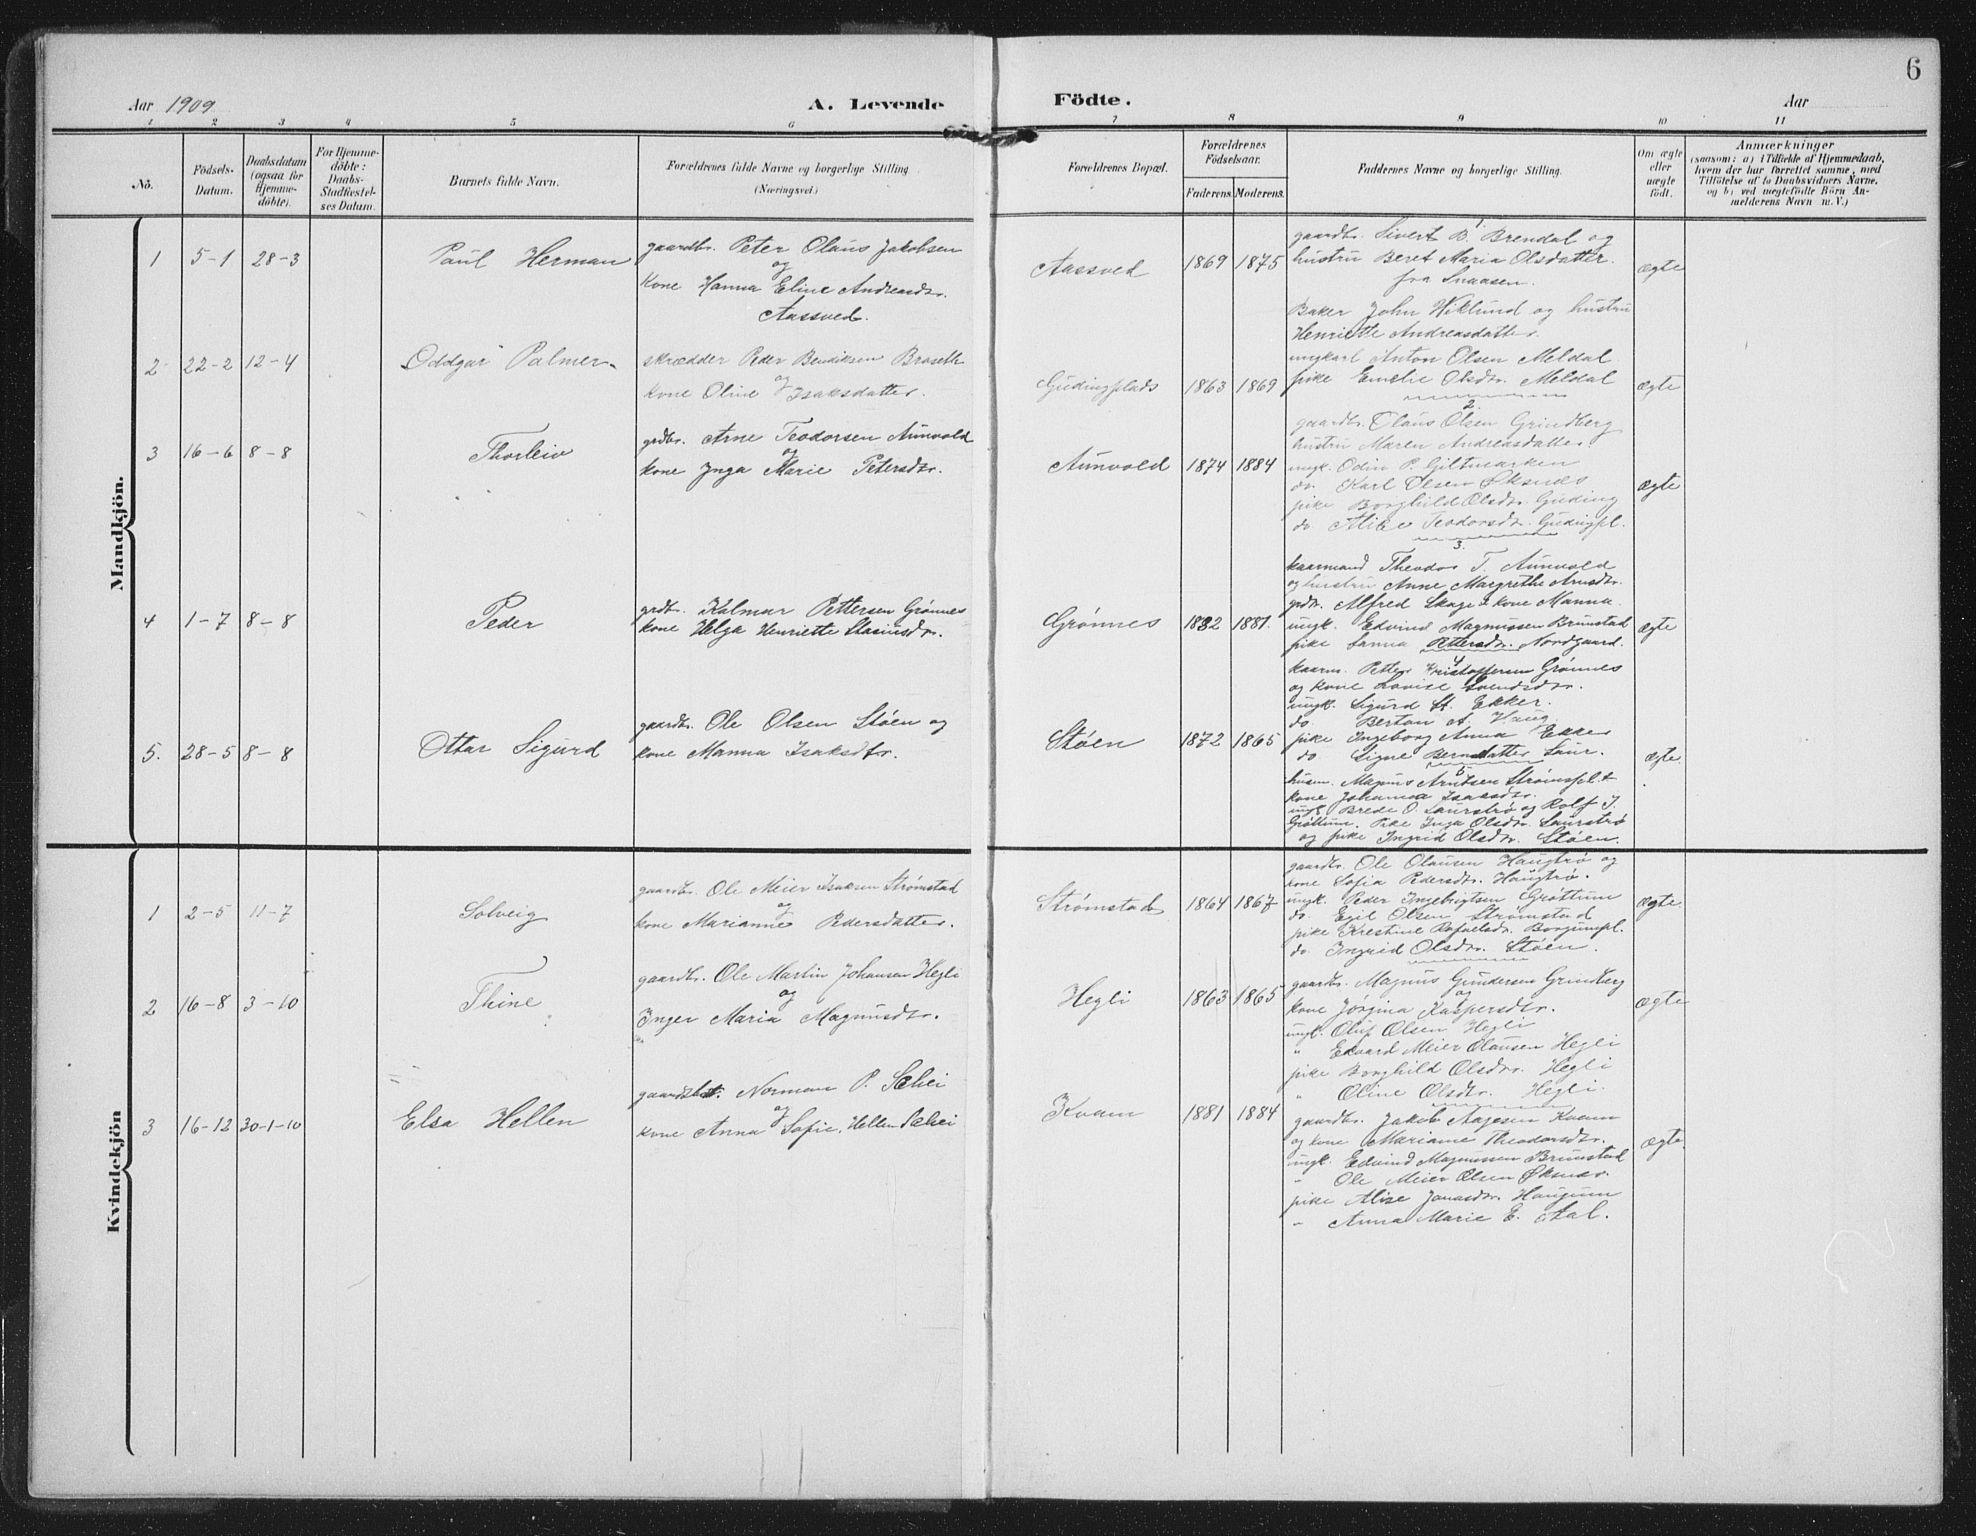 6
Aar 1909
A. Levende
Födte.
Aar
1 2 3 4 5 6 7 8 9 10 11
No.
Födsels-
Datum.
Daabsdatum
(ogsaa for
Hjemme-
döbte).
For Hjemme-
döbte:
Daabs-
Stadfæstel-
ses Datum.
Barnets fulde Navn.
Forældrenes fulde Navne og borgerlige Stilling
(Næringsvei.)
Forældrenes Bopæl.
Forældrenes
Födselsaar.
Faderens. Moderens.
Faddernes Navne og borgerlige Stilling.
Om ægte
eller
uægte
født.
Anmærkninger
(saasom: a) i Tilfælde af Hjemmedaab,
hvem der har forrettet samme, med
Tilföielse af to Daabsvidners Navne,
og b) ved uægtefödte Börn An-
melderens Navn m. V.)
Mandkjön.
1 5-1 28-3 Paul Herman
gaardbr. Peter Olaus Jakobsen
og
kone Hanna Eline Andreasdtr.
Aassved.
Aassved 1869 1875
1
gaardbr. Sivert B. Brendal og
hustru Beret Maria Olsdatter
fra Snaasen.
Baker John Wiklund og hustru
Henriette Andreasdatter
ungkarl Anton Olsen Meldal
pike Emelie Olsdtr. Meldal
ægte
2 22-2 12-4 Oddgar Palmer
skrædder Peder Bendiksen Braseth
og
kone Oline Isaksdatter.
Gudingplads 1863 1869
2
gaardbr. Olaus Olsen Grindberg
hustru Maren Andreasdatter
ungk. Odin P. Giltmarken
do. Karl Olsen Øksnes
pike Borghild Olsdtr. Guding
do. Alise Teodorsdtr. Gudingpl.
ægte
3 16-6 8-8 Thorleiv
grdbr. Arne Teodorsen Aunvold
og
kone Inga Marie Petersdtr.
Aunvold 1874 1884
3.
kaarmand Theodor T. Aunvold
og hustru Anne Margrethe Arnsdtr.
grdbr. Alfred Skage & kone Manna
ungk. Edvind Magnussen Brunstad
pike Sanna Pettersdtr. Nordgaard.
ægte
4 1-7 8-8 Peder
grdbr. Kalmar Pettersen Grønnes
kone Helga Henriette Stasiusdtr.
Grønnes 1882 1881.
4
kaarm. Petter Kristoffersen Grønnes
og kone Lovise Svendsdtr.
ungk. Sigurd St. Ekker.
do. Bertan A. Haug
pike Ingeborg Anna Ekker
do Signe Berndatter Saur.
ægte
5. 28-5 8-8 Ottar Sigurd
gaardbr. Ole Olsen Støen og
kone Manna Isaksdtr.
Støen 1872 1865
5
husm. Magnus Arntsen Strømspl. &
kone Johanna Isaksdtr.
ungk. Brede O. Saurstrø og Rolf I.
Grøttum. Pike Inga Olsdtr. Saurstrø
og pike Ingrid Olsdtr. Støen.
ægte
Kvindekjön
1 2-5 11-7 Solveig
gaardbr. Ole Meier Isaksen Strømstad
og
kone Marianne Pedersdatter.
Strømstad 1864 1867
gaardbr. Ole Olausen Haugtrø og
kone Sofia Pedersdtr. Haugtrø.
ungk. Peder Ingebrigtsen Grøttum
do. Egil Olsen Strømstad
pike Krestine Rafaelsdr. Borgumpl.
do. Ingrid Olsdtr. Støen.
ægte
2 16-8 3-10 Thine
gaardbr. Ole Martin Johansen Hegli
og
Inger Maria Magnusdtr.
Hegli 1863 1865
gaardbr. Magnus Gundersen Grindberg
og
kone Jørgina Kaspersdtr.
ungk. Oluf Olsen Hegli
" Edvard Meier Olausen Hegli
pike Borghild Olsdtr. Hegli
" Oline Olsdtr. Hegli.
ægte
3 16-12 30-1-10 Elsa Hellen
gaardbr. Norman P. Schei
og
kone Anna Sofie Hellen Schei
Kvam 1881 1884
gaardbr. Jakob Aagesen Kvam
og kone Marianne Theodorsdtr.
ungk. Edvind Magnussen Brunstad
" Ole Meier Olsen Øksnes.
pike Alise Jonasdtr. Haugum
" Anna Marie E. Aal.
ægte